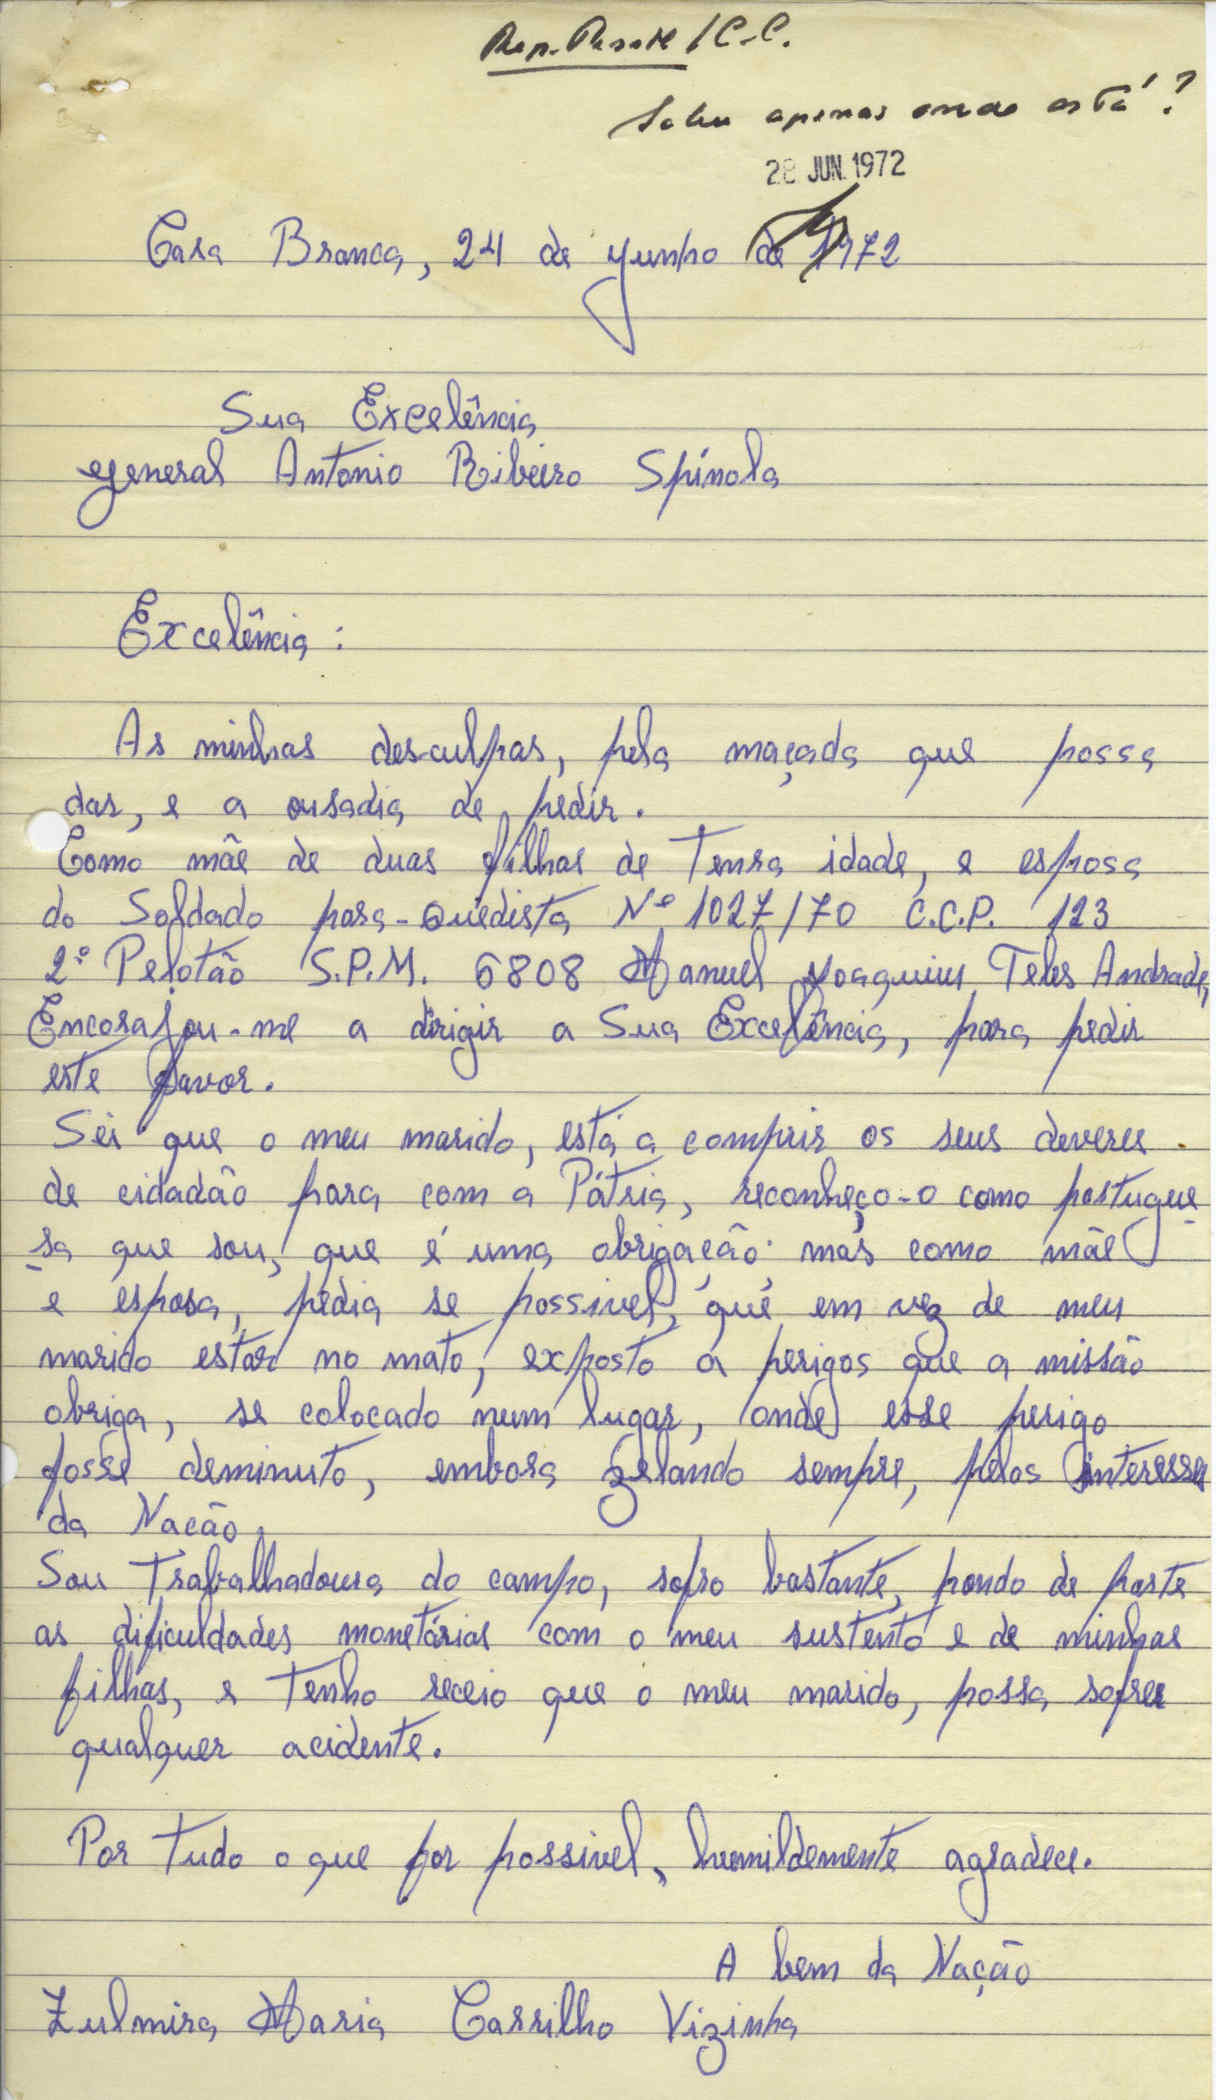 / C.C.
apenas onde está?
28 JUN. 1972
Casa Branca, 24 de Junho de 1972
Sua Excelência
General Antonio Ribeiro Spínola
Excelência:
As minhas desculpas, pela maçada que possa
dar, e a ousadia de pedir.
Como mãe de duas filhas de Tenra idade, e esposa
do Soldado para-Quedista Nº 1027/70 C.C.P. 123
2º Pelotão S.P.M. 6808 Manuel Joaquim Teles Andrade,
Encorajou-me a dirigir a Sua Excelência, para pedir
este favor.
Sei que o meu marido, está a comprir os seus deveres
de cidadão para com a Pátria, reconheço-o como portugue
sa que sou, que é uma obrigação mas como mãe
e esposa, pedia se possivel, que em vez de meu
marido estar no mato, exposto a perigos que a missão
obriga, se colocado num lugar, onde esse perigo
fosse deminuto, embora zelando sempre, pelos interesses
da Nacão.
Sou Trabalhadoura do campo, sofro bastante, pondo de parte
as dificuldades monetárias com o meu sustento e de minhas
filhas, e Tenho receio que o meu marido, possa sofrer
qualquer acidente.
Por Tudo o que for possivel, humildemente agradece.
A bem da Nação
Zulmira Maria Carrilho Vizinha